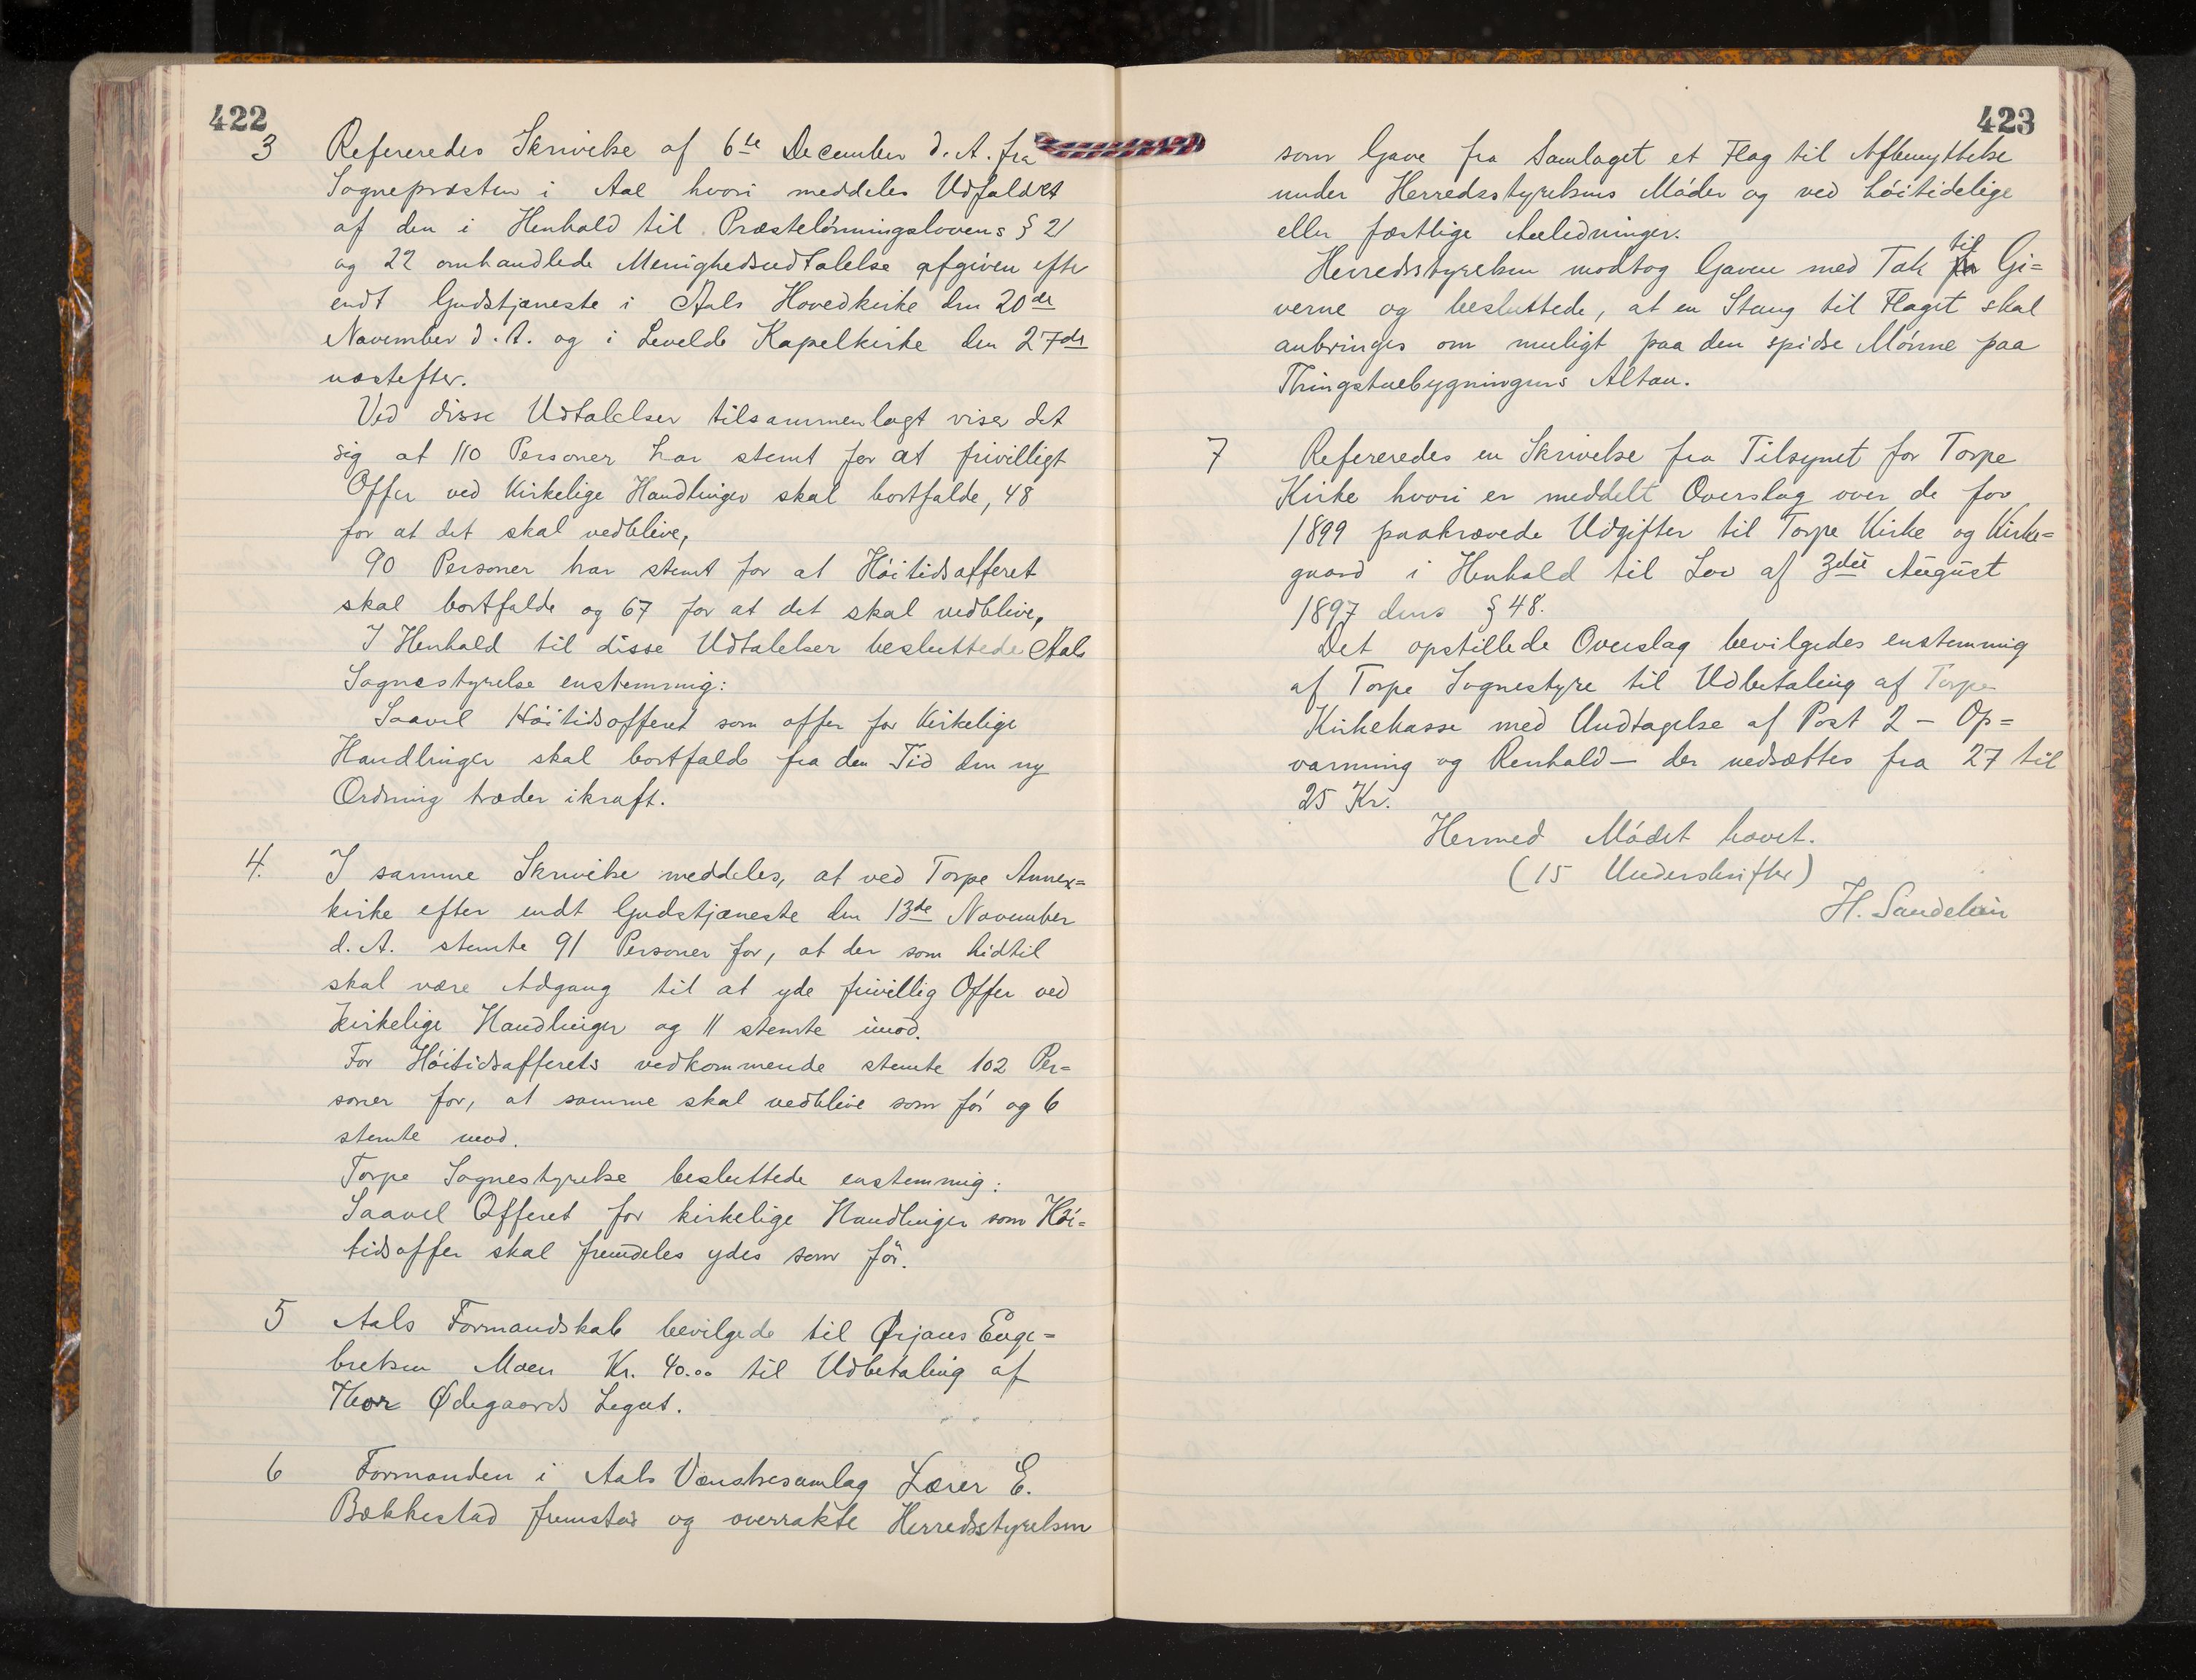 422
3 Refereredes Skrivelse af 6te December d. A. fra
Sognepræsten i Aal hvori meddeles Udfaldet
af den i Henhold til Præstelönningslovens § 21
og 22 omhandlede Menighedsudtalelse afgiven efter
endt Gudstjæneste i Aals Hovedkirke den 20de
November d. A. og i Levelds Kapelkirke den 27de
næstefter.
Ved disse Udtalelser tilsammenlagt viser det
sig at 110 Personer har stemt for at frivilligt
Offer ved Kirkelige Handlinger skal bortfalde, 48
for at det skal vedblive,
90 Personer har stemt for at Höitidsofferet
skal bortfalde og 67 for at det skal vedblive,
I Henhold til disse Udtalelser besluttede Aals
Sognestyrelse enstemmig:
Saavel Höitidsofferet som offer for Kirkelige
Handlinger skal bortfalde fra den Tid den ny
Ordning træder ikraft.
4. I samme Skrivelse meddeles, at ved Torpe Annex=
kirke efter endt Gudstjæneste den 13de November
d. A. stemte 91 Personer for, at der som hidtil
skal være Adgang til at yde frivillig Offer ved
kirkelige Handlinger og 11 stemte imod.
For Höitidsofferets vedkommende stemte 102 Per=
soner for, at samme skal vedblive som för og 6
stemte mod.
Torpe Sognestyrelse besluttede enstemmig:
Saavel Offeret for kirkelige Handlinger som Höi=
tidsoffer skal fremdeles ydes som för.
5 Aals Formandskab bevilgede til Ørjans Enge=
bretsen Moen Kr. 40.00 til Udbetaling af
Thor Ødegaards Legat.
6 Formanden i Aals Venstresamlag Lærer E.
Bækkestad fremstod og overrakte Herredsstyrelsen
423
som Gave fra Samlaget et Flag til Afbenyttelse
under Herredsstyrelsens Möder og ved höitidelige
eller fæstlige Anledninger.
Herredsstyrelsen modtog Gaven med Tak til Gi=
verne og besluttede, at en Stang til Flaget skal
anbringes om muligt paa den spidse Mönne paa
Thingstuebygningens Altan.
7 Refereredes en Skrivelse fra Tilsynet for Torpe
Kirke hvori er meddelt Overslag over de for
1899 paakrævede Udgifter til Torpe Kirke og Kirke=
gaard i Henhold til Lov af 3die August
1897 dens § 48.
Det opstillede Overslag bevilgedes enstemmig
af Torpe Sognestyre til Udbetaling af Torpe
Kirkekasse med Undtagelse af Post 2 – Op=
varming og Renhold – der nedsættes fra 27 til
25 Kr.
Hermed Mödet hævet.
(15 Underskrifter)
H. Sandelien